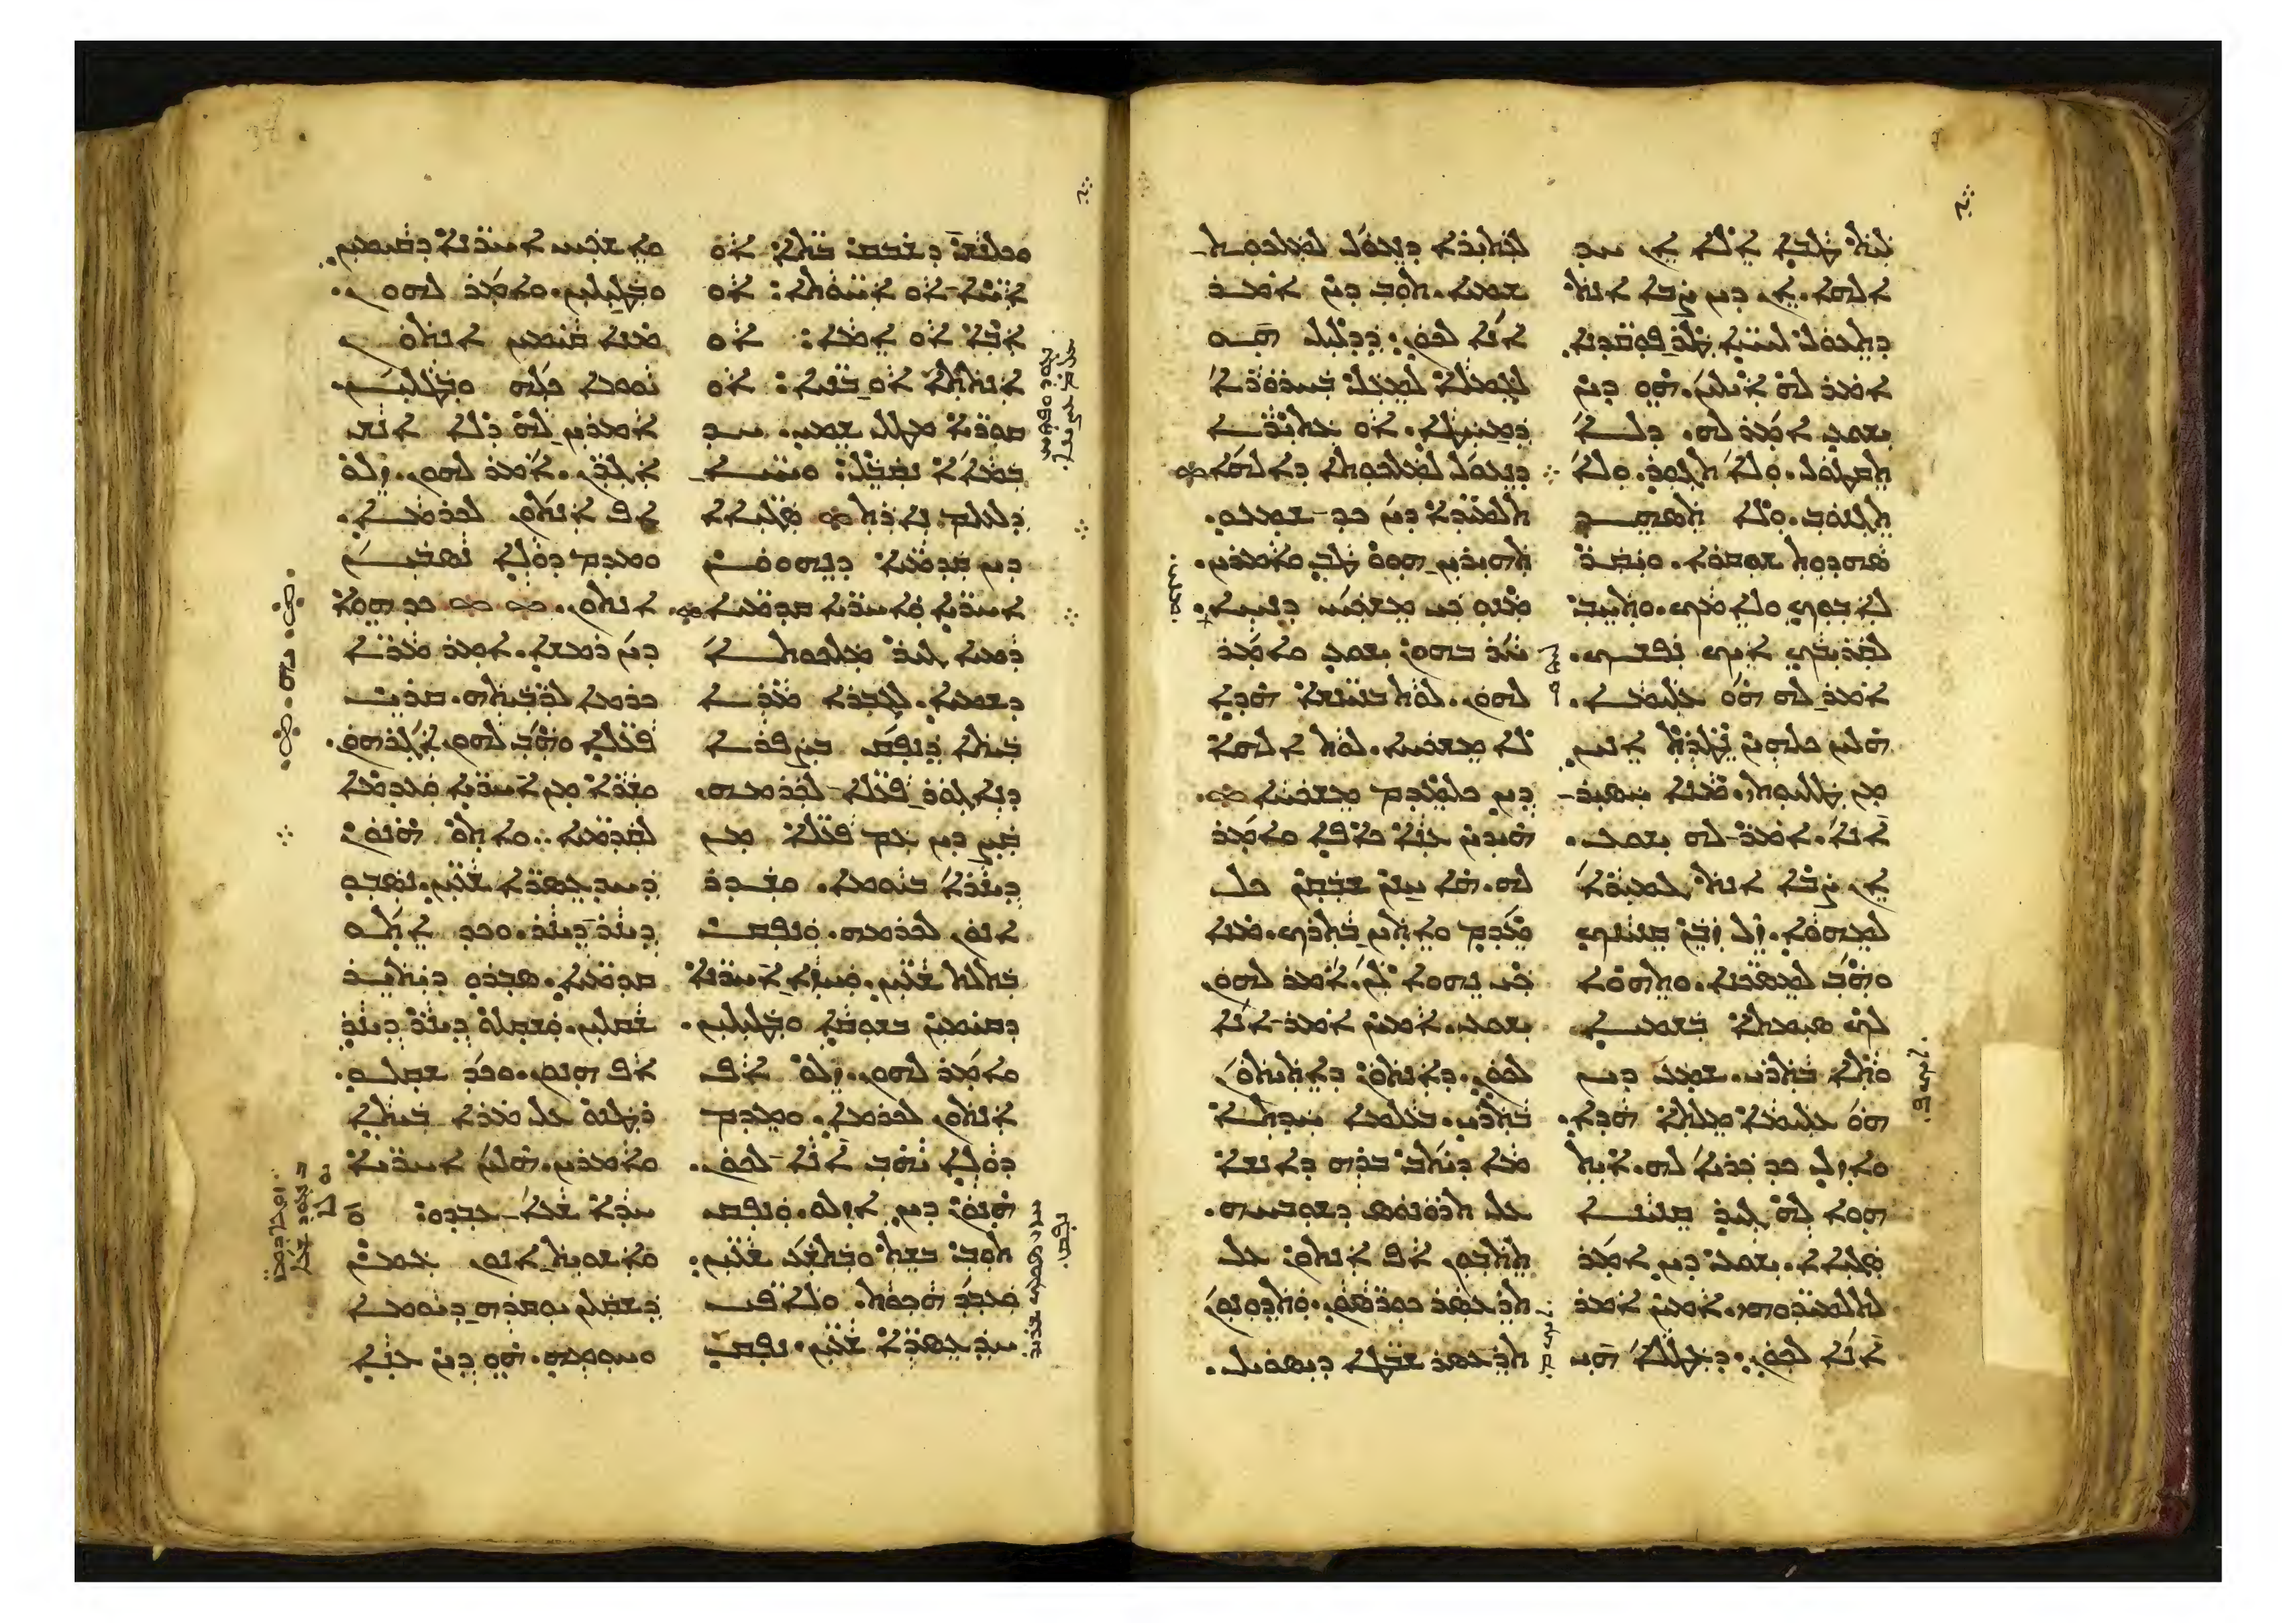 ܠܝܬ ܛܒܐ ܐܠܐ ܐܢ ܚܕ
ܐܠܗܐ. ܐܢ ܕܝܢ ܨܒܐ ܐܢܬ
ܕܬܥܘܠ ܠܚܝܐ ܛܪ ܦܘܩܕܢܐ
ܐܡܪ ܠܗ ܐܝܠܝܢ. ܗܘ ܕܝܢ
ܝܫܘܥ ܐܡܪ ܠܗ. ܕܠܐ
ܬܩܛܘܠ. ܘܠܐ ܬܓܘܪ. ܘܠܐ
ܬܓܢܘܒ. ܘܠܐ ܬܣܗܕ
ܣܗܕܘܬ ܫܘܩܪܐ. ܘܝܩܪ
ܠܐܒܘܟ ܘܠܐܡܟ. ܘܬܚܒ
ܠܩܪܝܒܟ ܐܝܟ ܢܦܫܟ.
ܐܡܪ ܠܗ ܗܘ ܥܠܝܡܐ.
ܗܠܝܢ ܟܠܗܝܢ ܢܛܪܬ ܐܢܝܢ
ܡܢ ܛܠܝܘܬܝ. ܡܢܐ ܚܣܝܪ
ܐܢܐ. ܐܡܪ ܠܗ ܝܫܘܥ.
ܐܢ ܨܒܐ ܐܢܬ ܓܡܝܪܐ
ܠܡܗܘܐ. ܙܠ ܙܒܢ ܩܢܝܢܟ
ܘܗܒ ܠܡܣܟܢܐ. ܘܬܗܘܐ
ܠܟ ܣܝܡܬܐ ܒܫܡܝܐ
ܘܬܐ ܒܬܪܝ. ܫܡܥ ܕܝܢ
ܗܘ ܥܠܝܡܐ ܡܠܬܐ ܗܕܐ.
ܘܐܙܠ ܟܕ ܟܪܝܐ ܠܗ. ܐܝܬ
ܗܘܐ ܠܗ ܓܝܪ ܩܢܝܢܐ
ܣܓܝܐܐ. ܝܫܘܥ ܕܝܢ ܐܡܪ
ܠܬܠܡܝܕܘܗܝ. ܐܡܝܢ ܐܡܪ
ܐܢܐ ܠܟܘܢ. ܕܥܛܠܐ ܗܝ
ܠܥܬܝܪܐ ܕܢܥܘܠ ܠܡܠܟܘܬ
ܫܡܝܐ. ܬܘܒ ܕܝܢ ܐܡܪ
ܐܢܐ ܠܟܘܢ. ܕܕܠܝܠ ܗܘ
ܠܓܡܠܐ ܠܡܥܠ ܒܚܪܘܪܐ
ܕܡܚܛܐ. ܐܘ ܥܬܝܪܐ
ܕܢܥܘܠ ܠܡܠܟܘܬܐ ܕܐܠܗܐ
ܬܠܡܝܕܐ ܕܝܢ ܟܕ ܫܡܥܘ.
ܬܗܝܪܝܢ ܗܘܘ ܛܒ ܘܐܡܪܝܢ.
ܡܢܘ ܟܝ ܡܫܟܚ ܕܢܚܐ.
ܚܪ ܒܗܘܢ ܝܫܘܥ ܘܐܡܪ
ܠܗܘܢ. ܠܘܬ ܒܢܝܢܫܐ ܗܕܐ
ܠܐ ܡܫܟܚܐ. ܠܘܬ ܐܠܗܐ
ܕܝܢ ܟܠܡܕܡ ܡܫܟܚܐ
ܗܝܕܝܢ ܥܢܐ ܟܐܦܐ ܘܐܡܪ
ܠܗ. ܗܐ ܚܢܢ ܫܒܩܢ ܟܠ
ܡܕܡ ܘܐܬܝܢ ܒܬܪܟ. ܡܢܐ
ܟܝ ܢܗܘܐ ܠܢ. ܐܡܪ ܠܗܘܢ
ܝܫܘܥ. ܐܡܝܢ ܐܡܪ ܐܢܐ
ܠܟܘܢ. ܕܐܢܬܘܢ ܕܐܬܝܬܘܢ
ܒܬܪܝ. ܒܥܠܡܐ ܚܕܬܐ
ܡܐ ܕܝܬܒ ܒܪܗ ܕܐܢܫܐ
ܥܠ ܬܪܘܢܘܣ ܕܫܘܒܚܗ.
ܬܬܒܘܢ ܐܦ ܐܢܬܘܢ ܥܠ
ܬܪܥܣܪ ܟܘܪܣܘܢ. ܘܬܕܘܢܘܢ
ܬܪܥܣܪ ܫܒܛܐ ܕܝܣܪܝܠ.
ܘܟܠܢܫ ܕܫܒܩ ܒܬܐ: ܐܘ
ܐܚܐ ܐܘ ܐܚܘܬܐ: ܐܘ
ܐܒܐ ܐܘ ܐܡܐ: ܐܘ
ܐܢܬܬܐ ܐܘ ܒܢܝܐ: ܐܘ
ܩܘܪܝܐ ܡܛܠ ܫܡܝ. ܚܕ
ܒܡܐܐ ܢܩܒܠ: ܘܚܝܐ
ܕܠܥܠܡ ܢܐܪܬ ܣܓܝܐܐ
ܕܝܢ ܩܕܡܝܐ ܕܢܗܘܘܢ
ܐܚܪܝܐ ܘܐܚܪܝܐ ܩܕܡܝܐ
ܕܡܝܐ ܓܝܪ ܡܠܟܘܬܐ
ܕܫܡܝܐ. ܠܓܒܪܐ ܡܪܐ
ܒܝܬܐ ܕܢܦܩ ܒܨܦܪܐ
ܕܢܐܓܘܪ ܦܥܠܐ ܠܟܪܡܗ.
ܩܨ ܕܝܢ ܥܡ ܦܥܠܐ ܡܢ
ܕܝܢܪܐ ܒܝܘܡܐ. ܘܫܕܪ
ܐܢܘܢ ܠܟܪܡܗ. ܘܢܦܩ
ܒܬܠܬ ܫܥܝܢ. ܘܚܙܐ ܐܚܪܢܐ
ܕܩܝܡܝܢ ܒܫܘܩܐ ܘܒܛܝܠܝܢ.
ܘܐܡܪ ܠܗܘܢ. ܙܠܘ ܐܦ
ܐܢܬܘܢ ܠܟܪܡܐ. ܘܡܕܡ
ܕܘܠܐ ܝܗܒ ܐܢܐ ܠܟܘܢ.
ܗܢܘܢ ܕܝܢ ܐܙܠܘ. ܘܢܦܩ
ܬܘܒ ܒܫܬ ܘܒܬܫܥ ܫܥܝܢ.
ܘܥܒܕ ܗܟܘܬ. ܘܠܐܦܝ
ܚܕܥܣܪܐ ܫܥܝܢ. ܢܦܩ
ܘܐܫܟܚ ܐܚܪܢܐ ܕܩܝܡܝܢ
ܘܒܛܝܠܝܢ. ܘܐܡܪ ܠܗܘܢ.
ܡܢܐ ܩܝܡܝܢ ܐܢܬܘܢ
ܝܘܡܐ ܟܠܗ ܘܒܛܠܝܢ
ܐܡܪܝܢ ܠܗ ܕܠܐ ܐܢܫ
ܐܓܪܢ. ܐܡܪ ܠܗܘܢ. ܙܠܘ
ܐܦ ܐܢܬܘܢ ܠܟܪܡܐ.
ܘܡܕܡ ܕܘܠܐ ܢܣܒܝܢ
ܐܢܬܘܢ. ܟܕ ܗܘܐ
ܕܝܢ ܪܡܫܐ. ܐܡܪ ܡܪܐ
ܟܪܡܐ ܠܪܒܝܬܗ. ܩܪܝ
ܦܥܠܐ ܘܗܒ ܠܗܘܢ ܐܓܪܗܘܢ.
ܘܫܪܐ ܡܢ ܐܚܪܝܐ ܘܥܕܡܐ
ܠܩܕܡܝܐ. ܘܐܬܘ ܗܢܘܢ
ܕܚܕܥܣܪܐ ܫܥܝܢ. ܢܣܒܘ
ܕܝܢܪ ܕܝܢܪ. ܘܟܕ ܐܬܘ
ܩܕܡܝܐ. ܣܒܪܘ ܕܝܬܝܪ
ܫܩܠܝܢ. ܘܫܩܠܘ ܕܝܢܪ ܕܝܢܪ
ܐܦ ܗܢܘܢ. ܘܟܕ ܫܩܠܘ.
ܪܛܢܘ ܥܠ ܡܪܐ ܒܝܬܐ
ܘܐܡܪܝܢ. ܗܠܝܢ ܐܚܪܝܐ
ܚܕܐ ܫܥܐ ܥܒܕܘ:
ܘܐܫܘܝܬ ܐܢܘܢ ܥܡܢ
ܕܫܩܠܢ ܝܘܩܪܗ ܕܝܘܡܐ
ܘܚܘܡܗ. ܗܘ ܕܝܢ ܥܢܐ